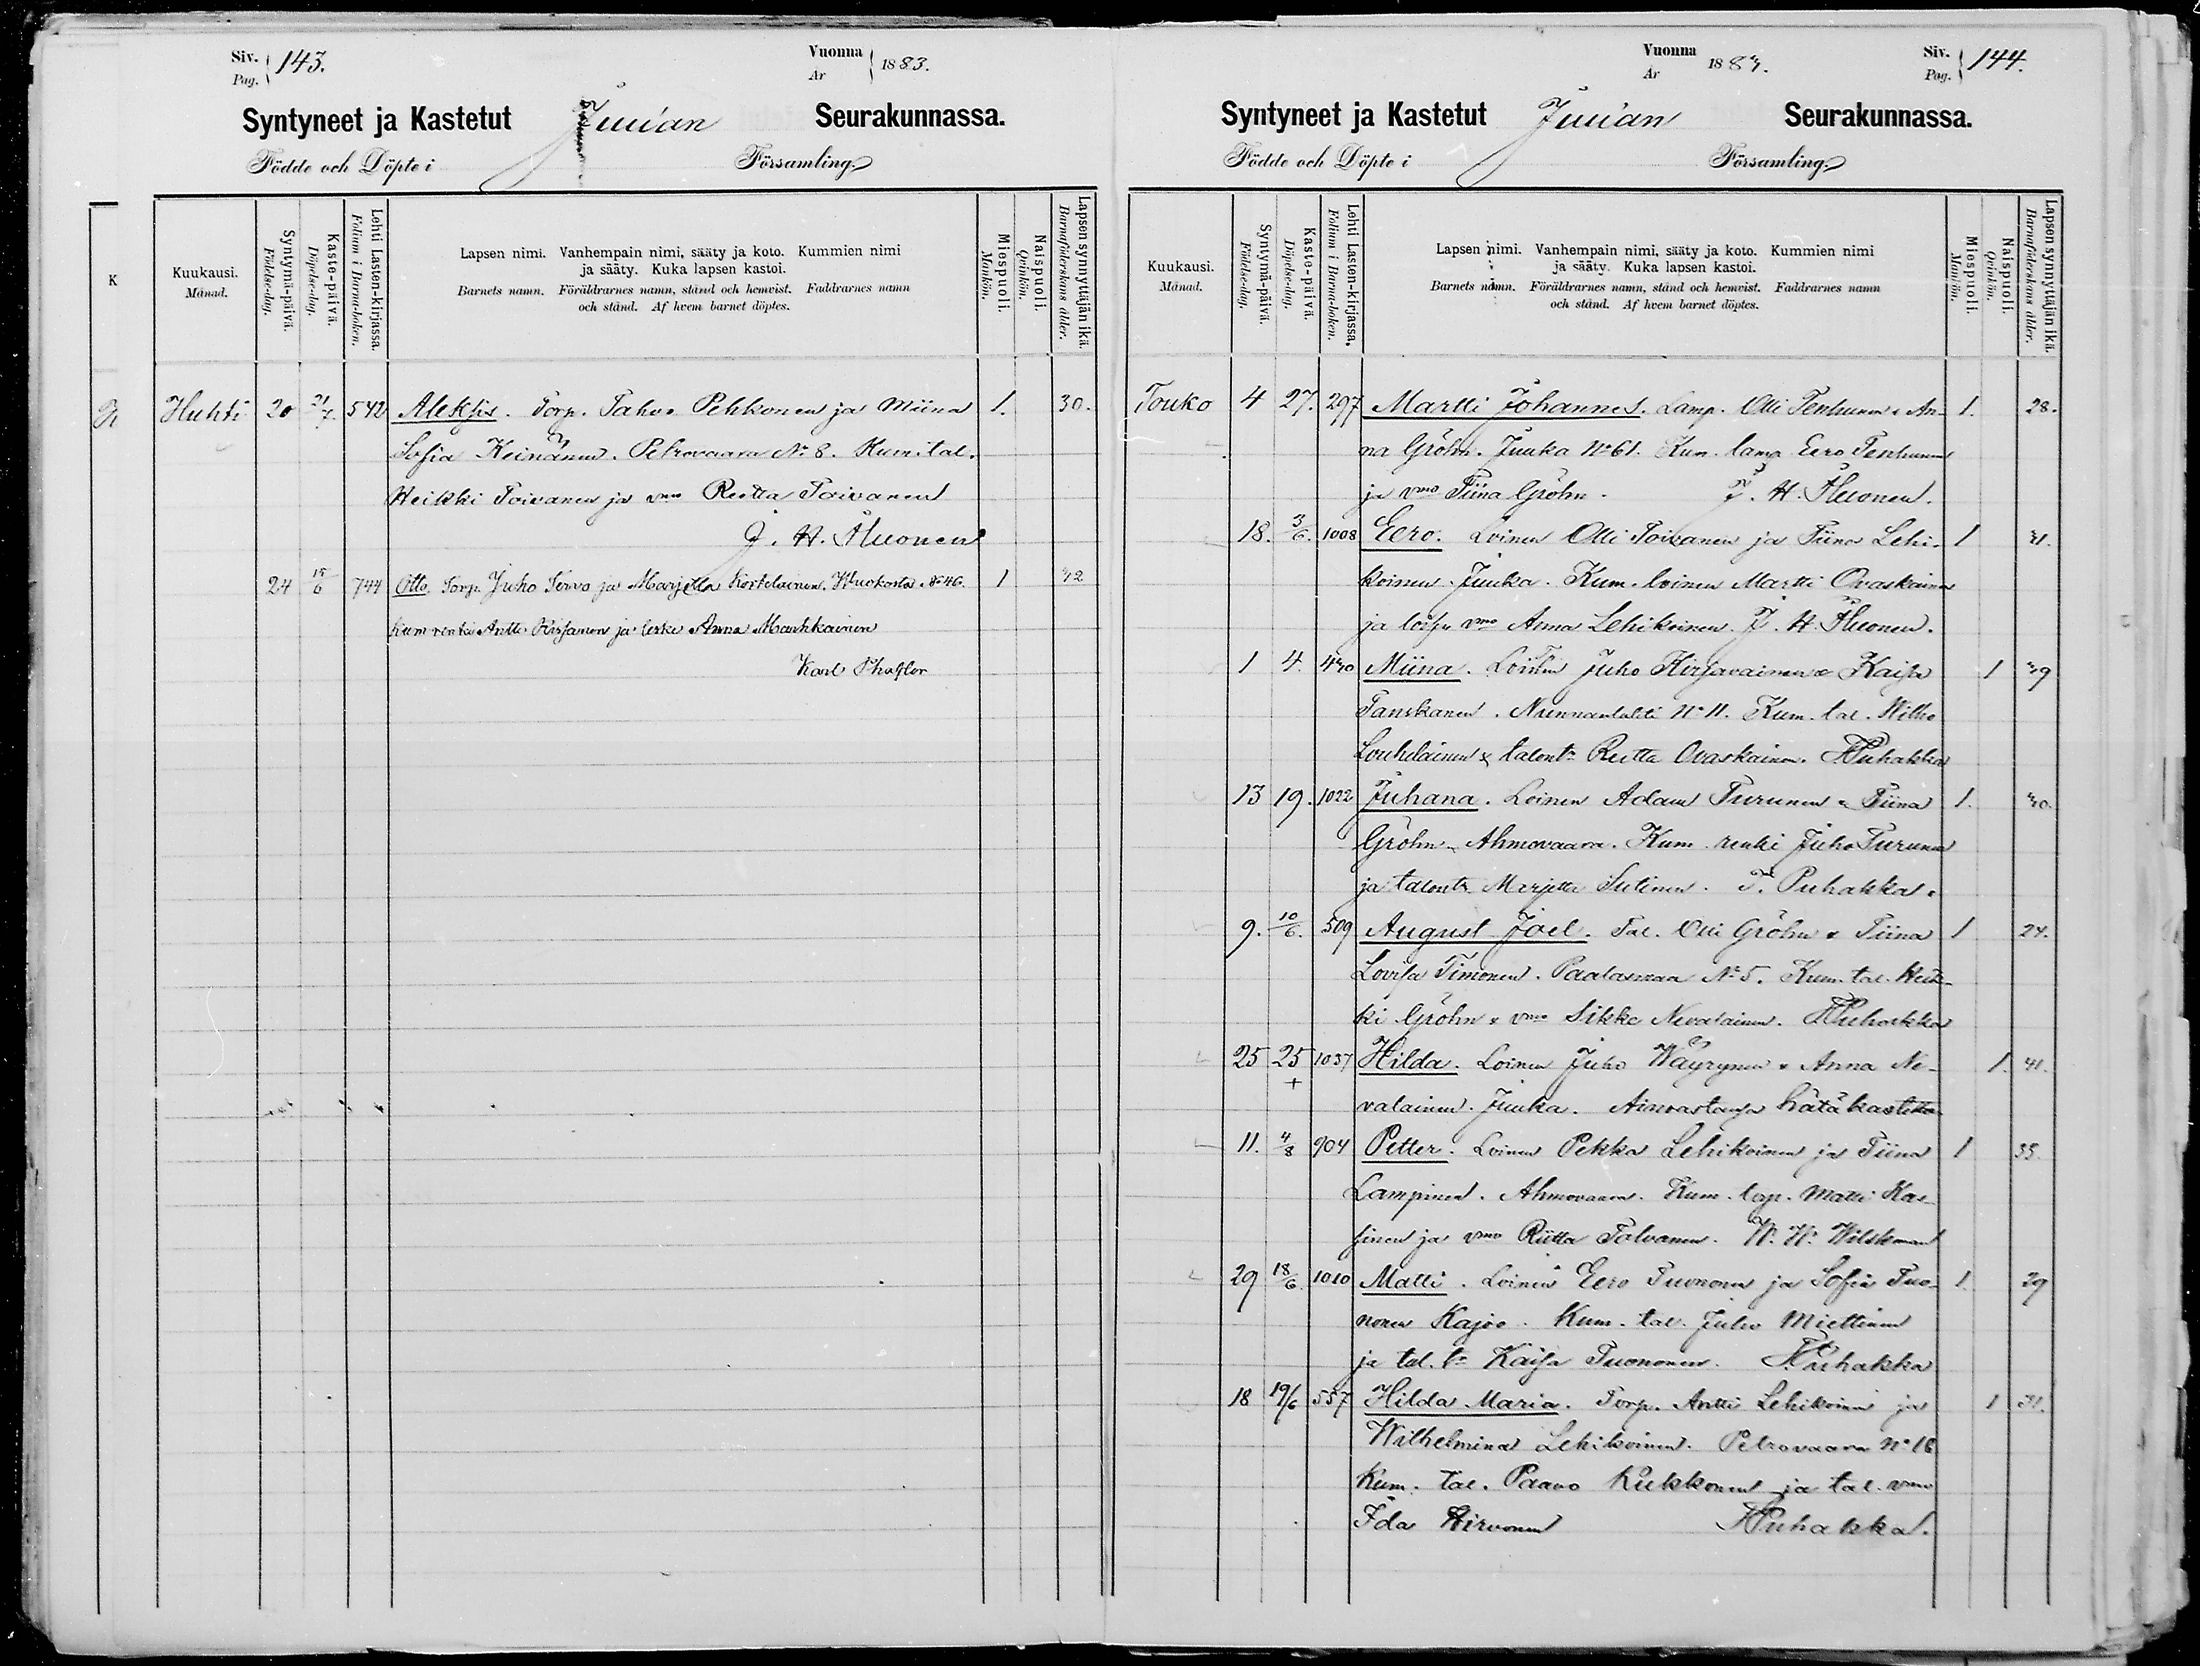 Siv. 143.
Pag.
Vuonna 1883.
Ar
Syntyneet ja Kastetut Juuan Seurakunnassa.
Födde och Döpte i Församling.
K
Kuukausi.
Månad.
Syntymä-päivä.
Födelse-dag.
Kaste-päivä.
Döpelse-dag.
Lehti Lasten-kirjassa.
Folium i Barna-boken.
Lapsen nimi. Vanhempain nimi, sääty ja koto. Kummien nimi
ja sääty. Kuka lapsen kastoi.
Barnets namn. Föräldrarnes namn, stånd och hemvist. Faddrarnes namn
och stånd. Af hvem barnet döptes.
Miespuoli.
Mankön.
Naispuoli.
Qvinkön.
Lapsen synnyttäjän ikä.
Barnaföderskans ålder.
Huhti 20 21/7. 542 Aleksis. Torp. Tahvo Pehkonen ja Miina 1. 30.
Sofia Keinänen. Petrovaara No 8. Kum. tal.
Heikki Toivanen ja vmo Reetta Toivanen
J. H. Huonen
24 15/6 744 Otto. Torp. Juho Tervo ja Marjetta Kortelainen. No 46. 1 42
Kum renki Antti ja leski Anna
Karl
Vuonna 1883.
Ar
Siv. 144.
Pag.
Syntyneet ja Kastetut Juuan Seurakunnassa.
Födde och Döpte i Församling.
Kuukausi.
Månad.
Syntymä-päivä.
Födelse-dag.
Kaste-päivä.
Döpelse-dag.
Lehti Lasten-kirjassa.
Folium i Barna-boken.
Lapsen nimi. Vanhempain nimi, sääty ja koto. Kummien nimi
ja sääty. Kuka lapsen kastoi.
Barnets namn. Föräldrarnes namn, stånd och hemvist. Faddrarnes namn
och stånd. Af hvem barnet döptes.
Miespuoli.
Mankön.
Naispuoli.
Qvinkön.
Lapsen synnyttäjän ikä.
Barnaföderskans ålder.
Touko 4 27. 297 Martti Johannes. Lamp. Olli Tenhunen & An- 1. 28.
na Gröhn. Juuka No 61. Kum. lamp Eero Tenhunen
ja vmo Tiina Gröhn. J. H. Huonen.
18. 3/6. 1008 Eero. Loinen Olli Toivanen ja Tiina Lehi- 1
koinen. Juuka. Kum. loinen Martti Ovaskainen
ja vmo Anna Lehikoinen. J. H. Huonen.
1 4. Miina. Loinen Juho Hirsavainen & Kaisa 1
Tanskanen. No 11. Kum. tal. Wilho
Louhelainen & talont. Reetta Ovaskainen. Puhakka
13 19. 1022 Juhana. Loinen Adam Turunen & Tiina 1.
Gröhn. Ahmovaara. Kum. renki Juho Turunen
ja talont. Marjetta Sutinen. F. Puhakka.
9. 10/6. 509 August Joel. Tal. Olli Gröhn & Tiina 1 24.
Lovisa Timonen. Paalasmaa No 5. Kum. tal. Heik-
ki Gröhn & vmo Sikke Nevalainen. Puhakka
25 25 1037 Hilda. Loinen Juho Wäyrynen & Anna Ne- 1. 41.
+
valainen. Juuka. Ainoastansa hätäkastettu
11. 4/8 904 Petter. Loinen Pekka Lehikoinen ja Tiina 1 35.
Lampinen. Ahmovaara. Kum. torp. Matti Kar-
ja vmo Riitta Talvanen. W. W. Wilskman
29 18/6. 1010 Matti. Loinen Eero Tuononen ja Sofia Tuo- 1. 29
nonen Kajoo. Kum. tal. Juho Miettinen
ja tal. tr Kaisa Tuononen. Puhakka
18 19/6 557 Hilda Maria. Torp. Antti Lehikoinen ja 1 31.
Wilhelmina Lehikoinen. Petrovaara No 16
Kum. tal. Paavo Kukkonen ja tal. vmo
Ida Hirvonen Puhakka.